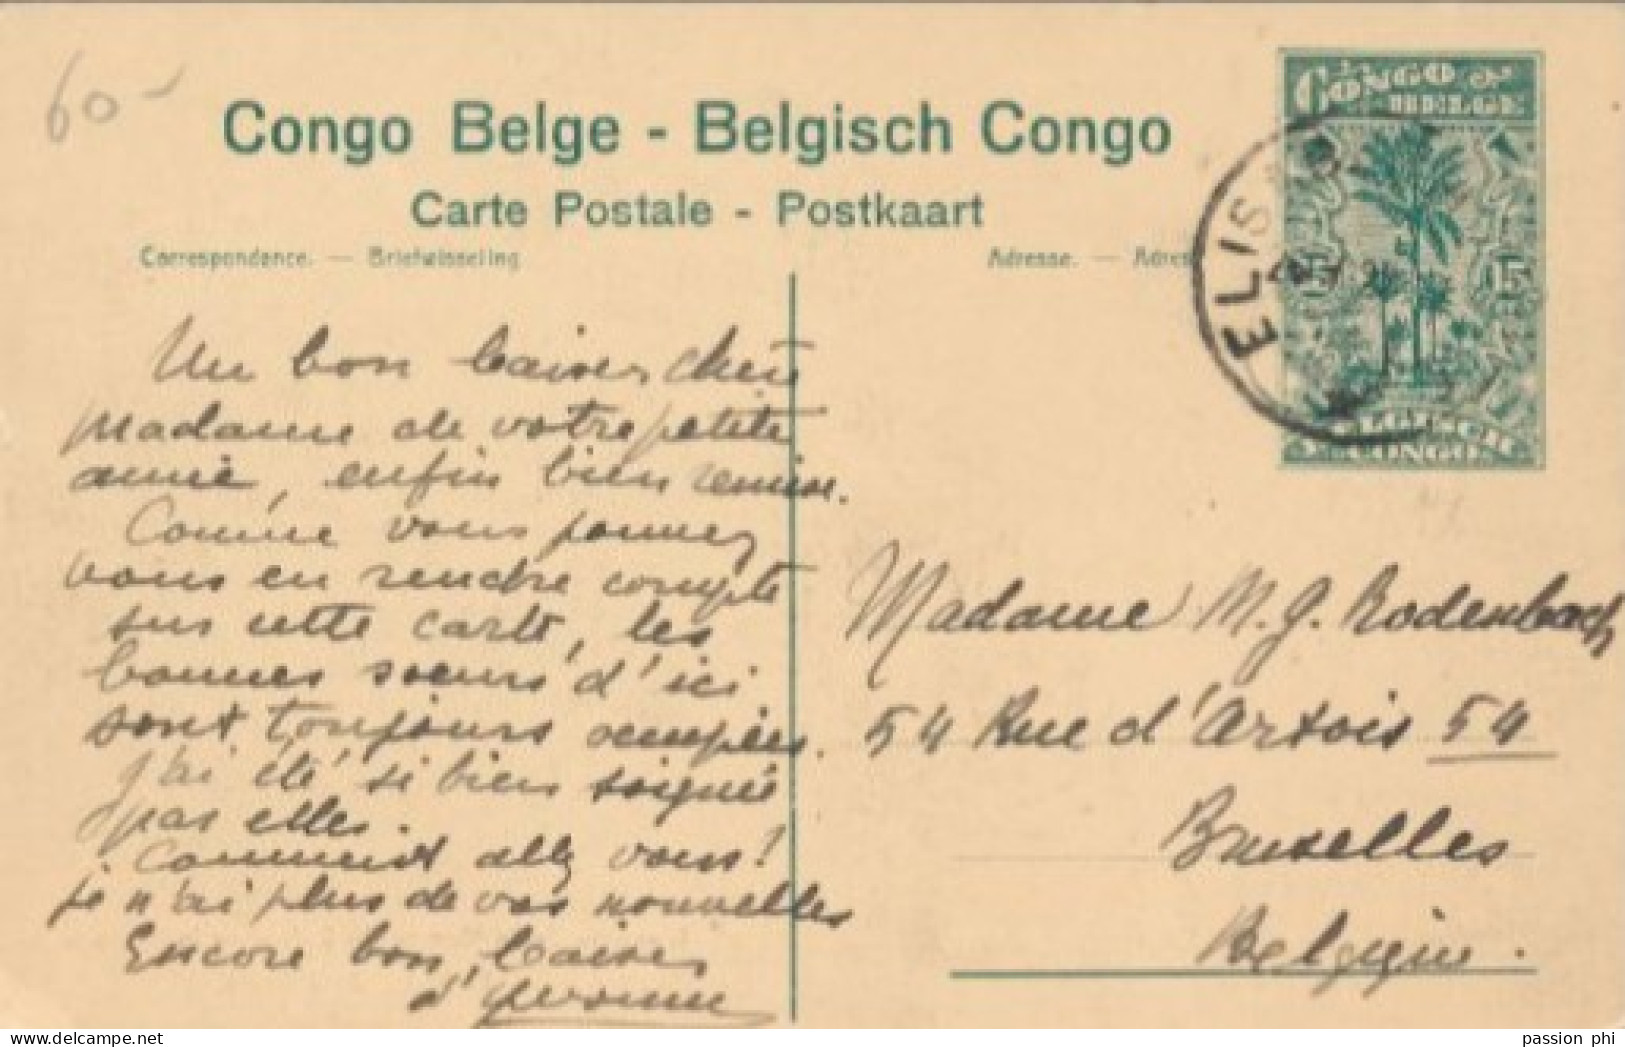 60-
Congo Belge - Belgisch Congo
Carte Postale - Postkaart
Correspondance. — Briefwisseling
Adresse. — Adres
CONGO
BELGE
15 15
BELGISCH
CONGO
ELIS
Un bon baiser chère
madame de votre petite
amie, enfin bien remise.
Comme vous pouvez
vous en rendre compte
sur cette carte, les
bonnes sœurs d'ici
sont toujours occupées.
J'ai été si bien soignée
par elles.
Comment allez vous!
je n'ai plus de vos nouvelles
Encore bon baiser
d'Yvonne
Madame M. J. Rodenbach
54 Rue d'Artois 54
Bruxelles
Belgique.
passion phi